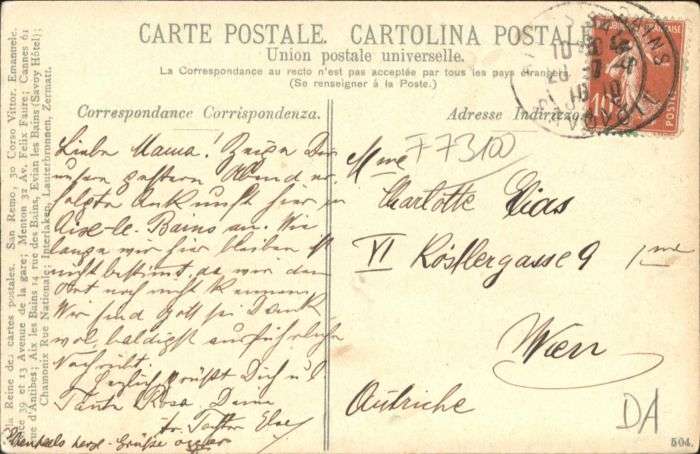 CARTE POSTALE. CARTOLINA POSTALE
Union postale universelle.
La Correspondance au recto n'est pas acceptée par tous les pays étrangers
(Se renseigner à la Poste.)
Correspondance Corrispondenza.
Adresse Indirizzo
la Reine des cartes postales. San Remo, 30 Corso Vittor. Emanuele.
39 et 13 Avenue de la gare; Menton 32 Av. Felix Faure; Cannes 61
rue d'Antibes; Aix les Bains 14 rue des Bains, Evian les Bains (Savoy Hôtel);
Chamonix Rue Nationale; Interlaken, Lauterbrunnen, Zermatt.
Liebe Mama! Zeige Dir
unsere gestern Abend er
folgte Ankunft hier in
Aix-le-Bains an. Wie
lange wir hier bleiben ist
noch bestimmt, da wir den
Ort noch nicht kennen
Wir sind Gott sei Dank
wol, baldigst ausführliche
Nachricht.
Herzlich grüßt Dich u
Tante Rosa, Deine
Ebenfalls herzl. Grüße
F73100
Mme
Charlotte Elias
VI Röstlergasse 9
Wien
Autriche
DA
10
POSTES
504.